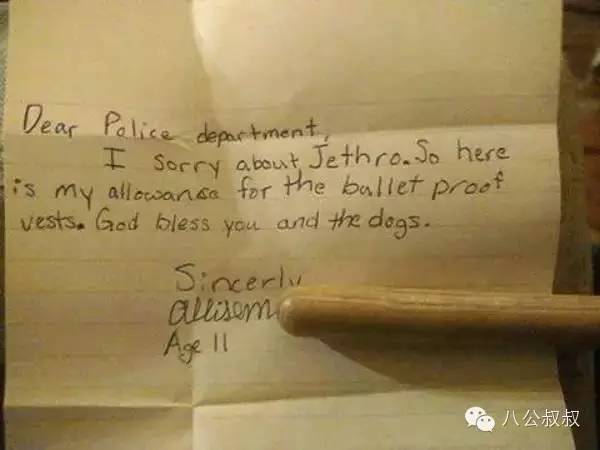 Dear Police department,
I sorry about Jethro. So here
is my allowanse for the bullet proof
vests. God bless you and the dogs.
Sincerly
Age 11
八公叔叔